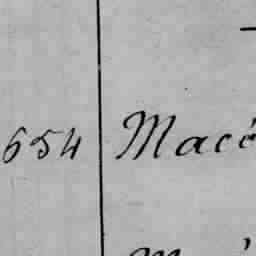 654 Macé